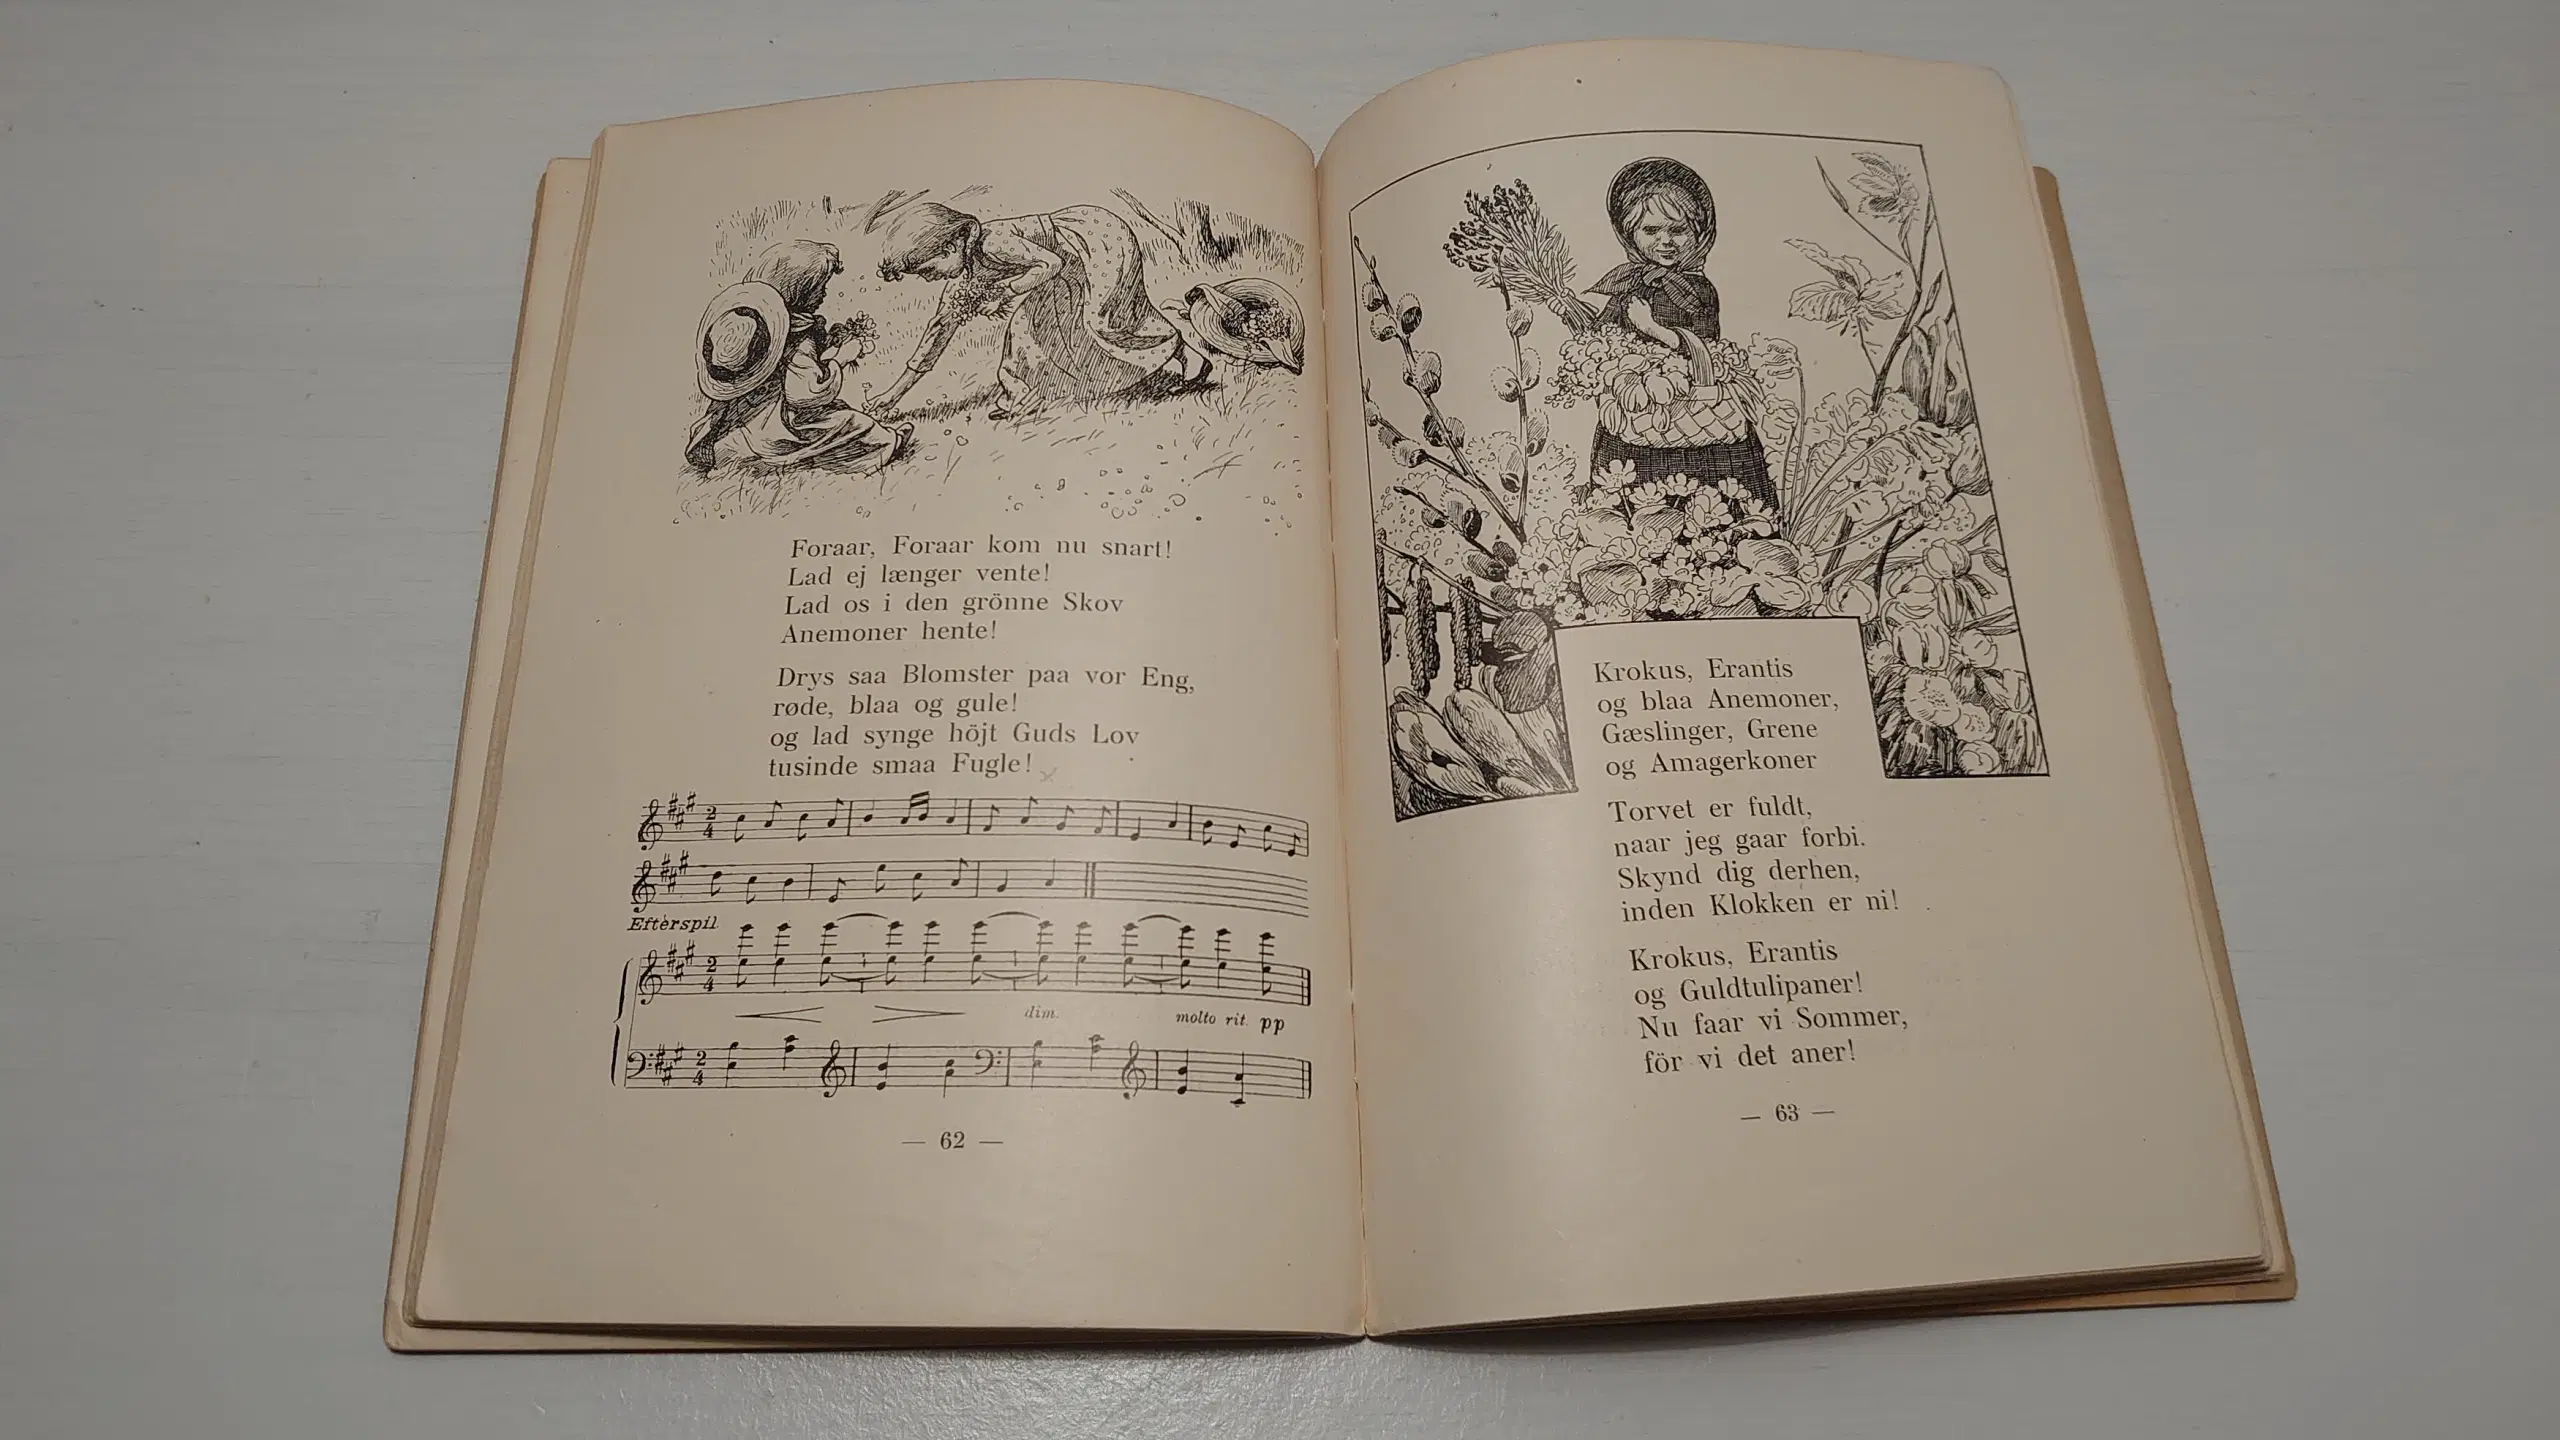 Foraar, Foraar kom nu snart!
Lad ej længer vente!
Lad os i den grönne Skov
Anemoner hente!
Drys saa Blomster paa vor Eng,
røde, blaa og gule!
og lad synge höjt Guds Lov
tusinde smaa Fugle!
2
4
Efterspil
2
4
dim.
molto rit. pp
2
4
— 62 —
Krokus, Erantis
og blaa Anemoner,
Gæslinger, Grene
og Amagerkoner
Torvet er fuldt,
naar jeg gaar forbi.
Skynd dig derhen,
inden Klokken er ni!
Krokus, Erantis
og Guldtulipaner!
Nu faar vi Sommer,
för vi det aner!
— 63 —